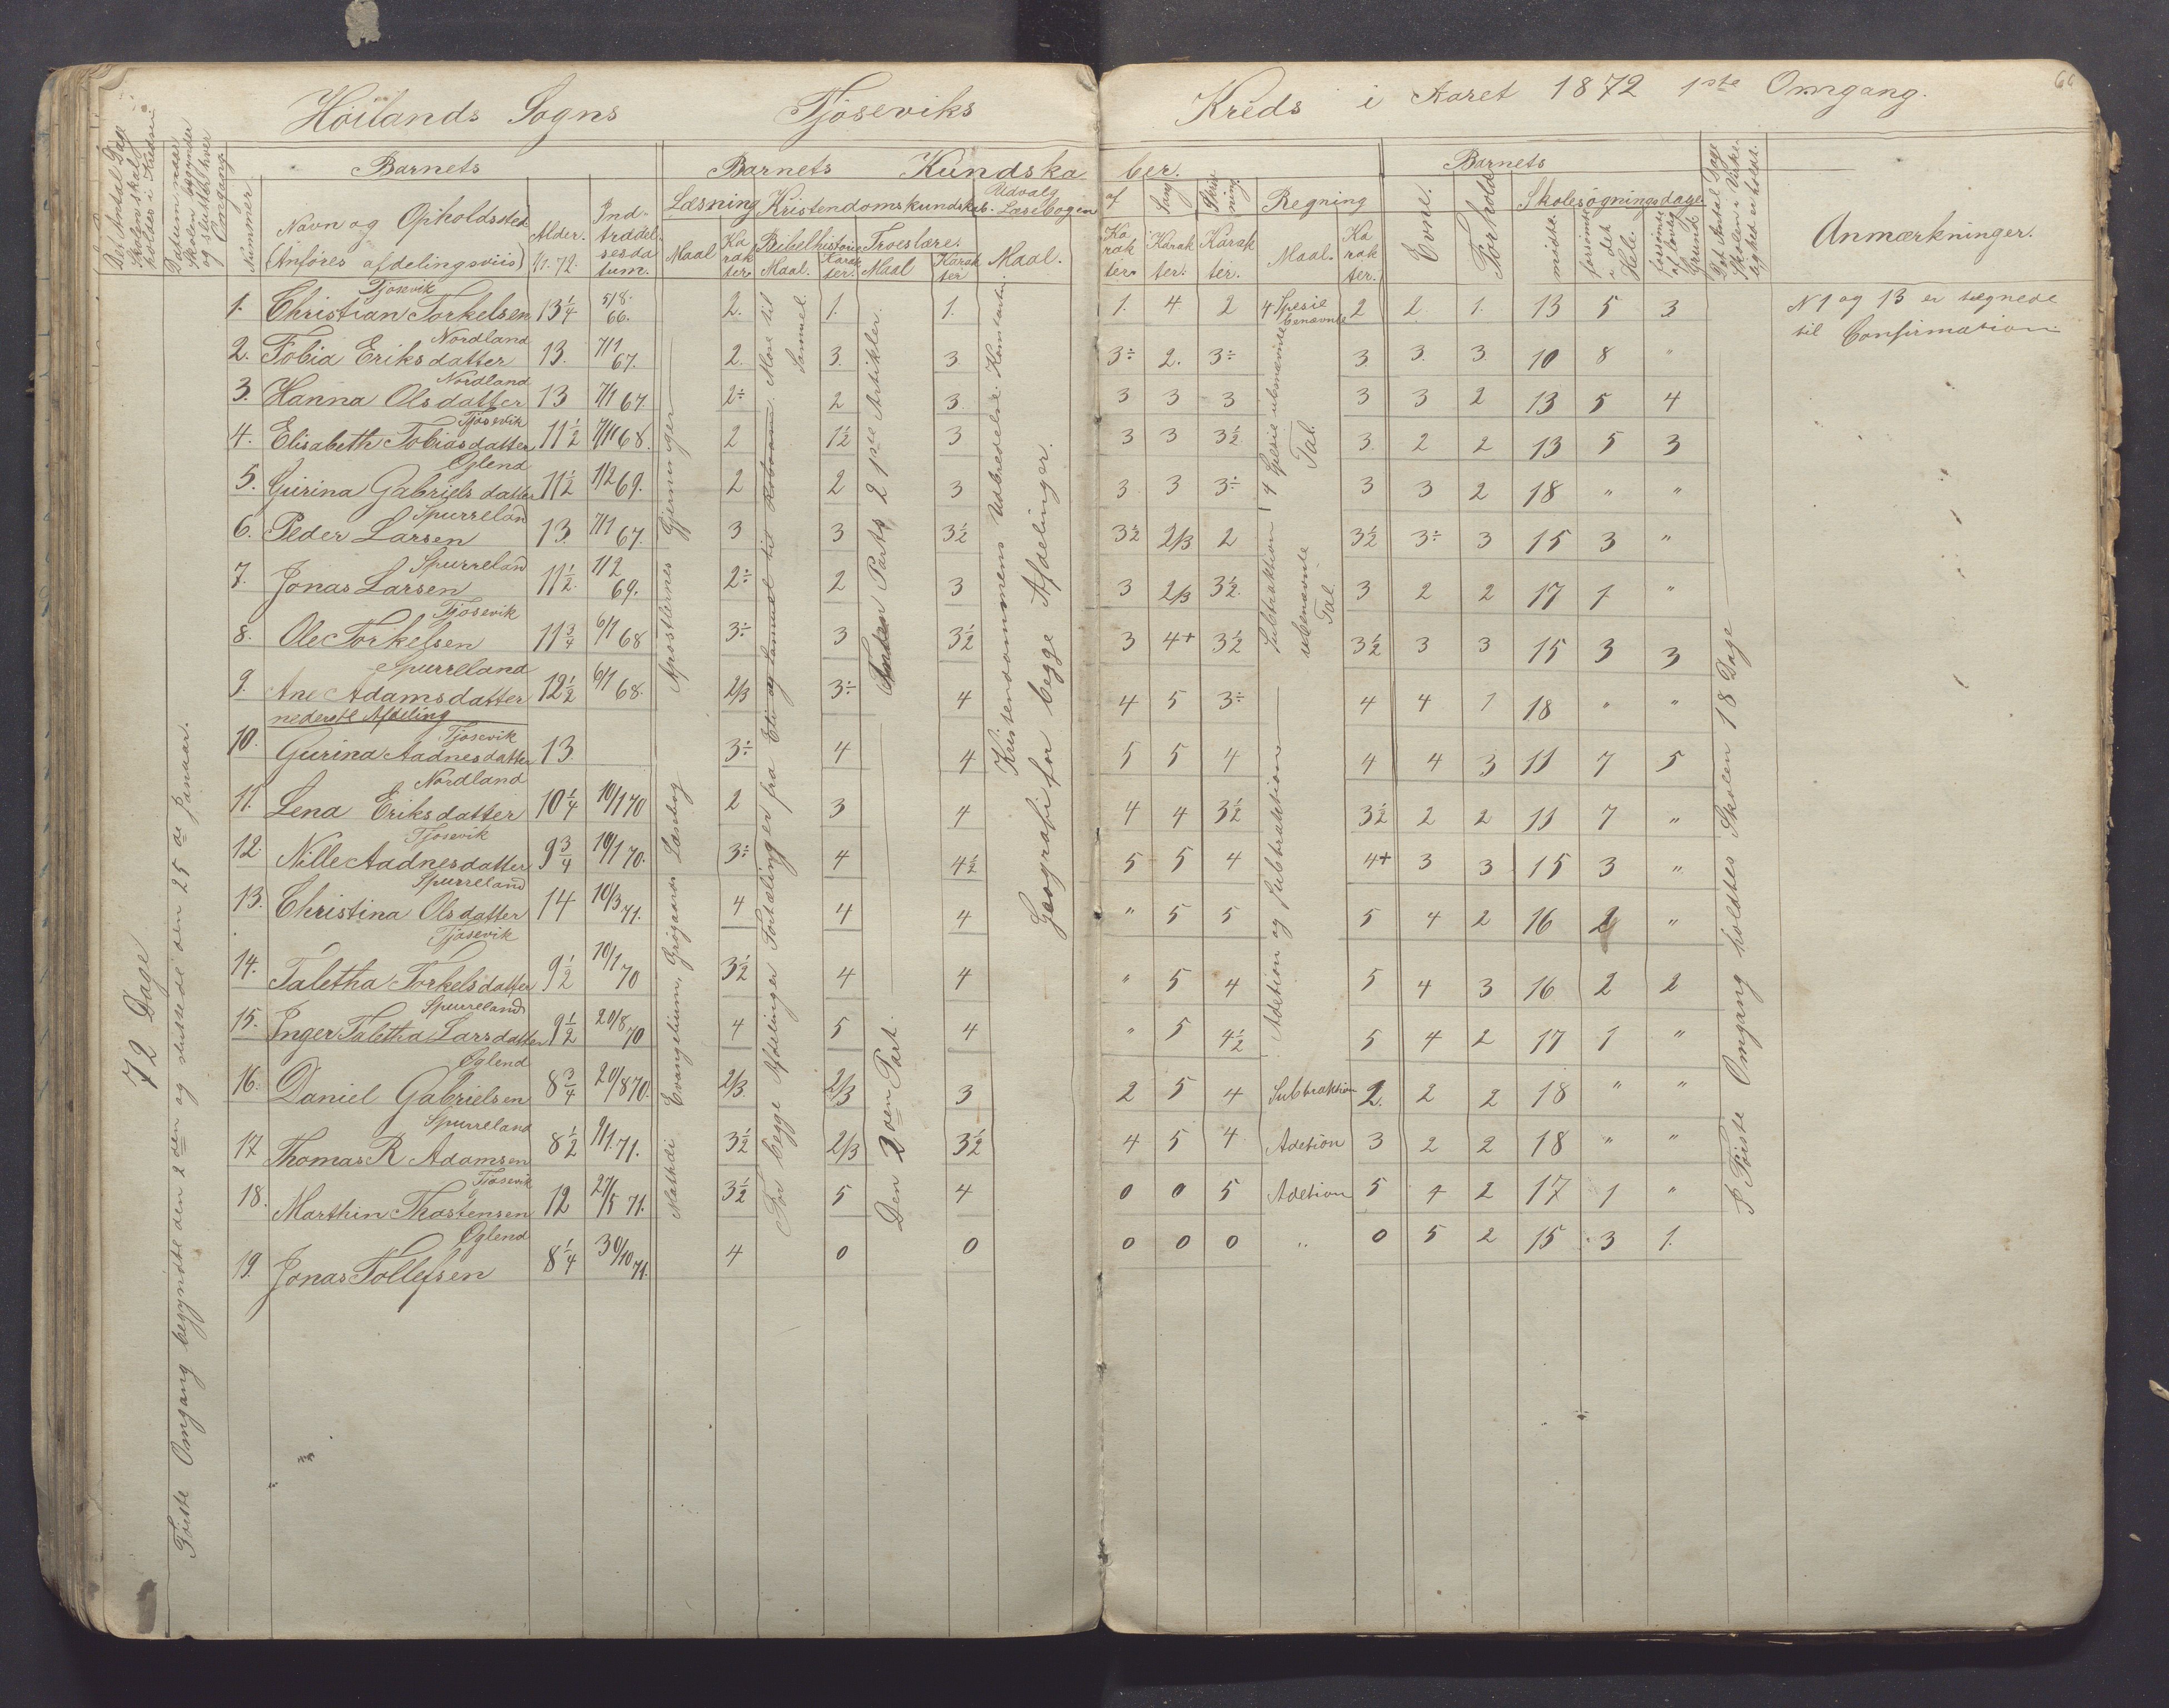 Höilands Sogns Tjöseviks Kreds i Aaret 1872 1ste Omgang.
66
Det Antal Dage Skolen skal holdes i Kredsen
Datum naar Skolen begynder og sluttes hver Omgang.
Nummer.
Barnets
Navn og Opholdssted (Anføres afdelingsviis)
Alder. 1/1. 72.
Indtrædelsesdatum.
Barnets Kundskaber.
Læsning Maal Karakter.
Kristendomskundskab.
Bibelhistorie Maal. Karakter.
Troeslære. Maal Karakter
Udvalg af Læsebogen Maal. Karakter
Sang Karakter.
Skrivning. Karakter.
Regning Maal. Karakter.
Barnets
Evne.
Forhold
Skolesøgningsdage
mødte.
forsømte i det Hele.
forsømte af lovlig Grund
Det Antal Dage Skolen i Virkelighed er holdt.
Anmærkninger.
72 Dage
Föiste Omgang begyndte den 2den og sluttede den 25de Januar.
1. Christian Torkelsen Tjosevik 13 1/4 5/8. 66. 2. 1. 1. 1. 4. 2 4 Spesie benævnte 2 2. 1. 13 5 3
2. Tobia Eriksdatter Nordland 13. 7/1 67. 2. 3. 3. 3÷ 2. 3÷ 3. 3. 3. 10 8 "
3. Hanna Olsdatter Nordland 13 7/1 67. 2÷ 2 3 3 3 3 3 3 2 13 5 4
4. Elisabeth Tobiasdatter Tjosevik 11 1/2 7/11 68. 2 1 1/2 3 3 3 3 1/2 3. 2 2 13 5 3
5. Gurina Gabrielsdatter Oglend 11 1/2 1/2 69. 2 2 3 3 3 3÷ 3 3 2 18 " "
6. Peder Larsen Spurreland 13. 7/1 67. 3 3 3 1/2 3 1/2 2/3 2 3 1/2 3÷ 3 15 3 "
7. Jonas Larsen Spurreland 11 1/2. 1/2 69. 2÷ 2 3 3 2/3 3 1/2. 3 2 2 17 1 "
8. Ole Torkelsen Tjosevik 11 3/4 6/1 68 3÷ 3 3 1/2 3 4+ 3 1/2 3 1/2 3 3 15 3 3
9. Ane Adamsdatter Spurreland 12 1/2 6/1 68. 2/3 3÷ 4 4 5 3÷ 4 4 1 18 " "
nederste Afdeling
10. Gurina Aadnesdatter Tjosevik 13. 3÷ 4 4 5 5 4 4 4 3 11 7 5
11. Lena Eriksdatter Nordland 10 1/4 10/1 70 2 3 4 4 4 3 1/2 3 1/2 2 2 11 7 "
12. Nille Aadnesdatter Tjosevik 9 3/4 10/1 70. 3÷ 4 4 1/2 5 5 4 4+ 3 3 15 3 "
13. Christina Olsdatter Spurreland 14 10/3 71. 4 4 4 " 5 5 5 4 2 16 2 "
14. Taletha Torkelsdatter Tjosevik 9 1/2 10/1 70 3 1/2 4 4 " 5 4 5 4 3 16 2 2
15. Inger Taletha Larsdatter Spurreland 9 1/2 20/8 70 4 5 4 " 5 4 1/2 5 4 2 17 1 "
16. Daniel Gabrielsen Oglend 8 3/4 20/8 70. 2/3. 2/3 3 2 5 4 Subtraktion 2. 2 2 18 " "
17 Thomas R Adamsen Spurreland 8 1/2 9/1. 71. 3 1/2 2/3 3 1/2 4 5 4 Adetion 3 2 2 18 " "
18. Marthin Thostensen Tjosevik 12 27/5 71. 3 1/2 5 4 0 0 5 Adetion 5 4 2 17 1 "
19. Jonas Tollefsen Oglend 8 1/4 30/10 71. 4 0 0 0 0 0 " 0 5 2 15 3 1.
Matthæi Evangelium, Grögaards Læsebog Apostlernes Gjerninger
For begge Afdelinger Fortælinger fra Eli og Samuel til Roboam. Mose til Samuel.
Anden Parts 2 1ste Artikler.
Den 2den Part.
Kristendommens Udbredelse. Konstantin.
Geografi for begge Afdelinger.
4 Spesie ubenævnte Tal.
Subtraktion i ubenævnte Tal.
Adetion og Subtraktion
I Föiste Omgang holdtes Skolen 18 Dage
N 1 og 13 er tegnede
til Confirmation